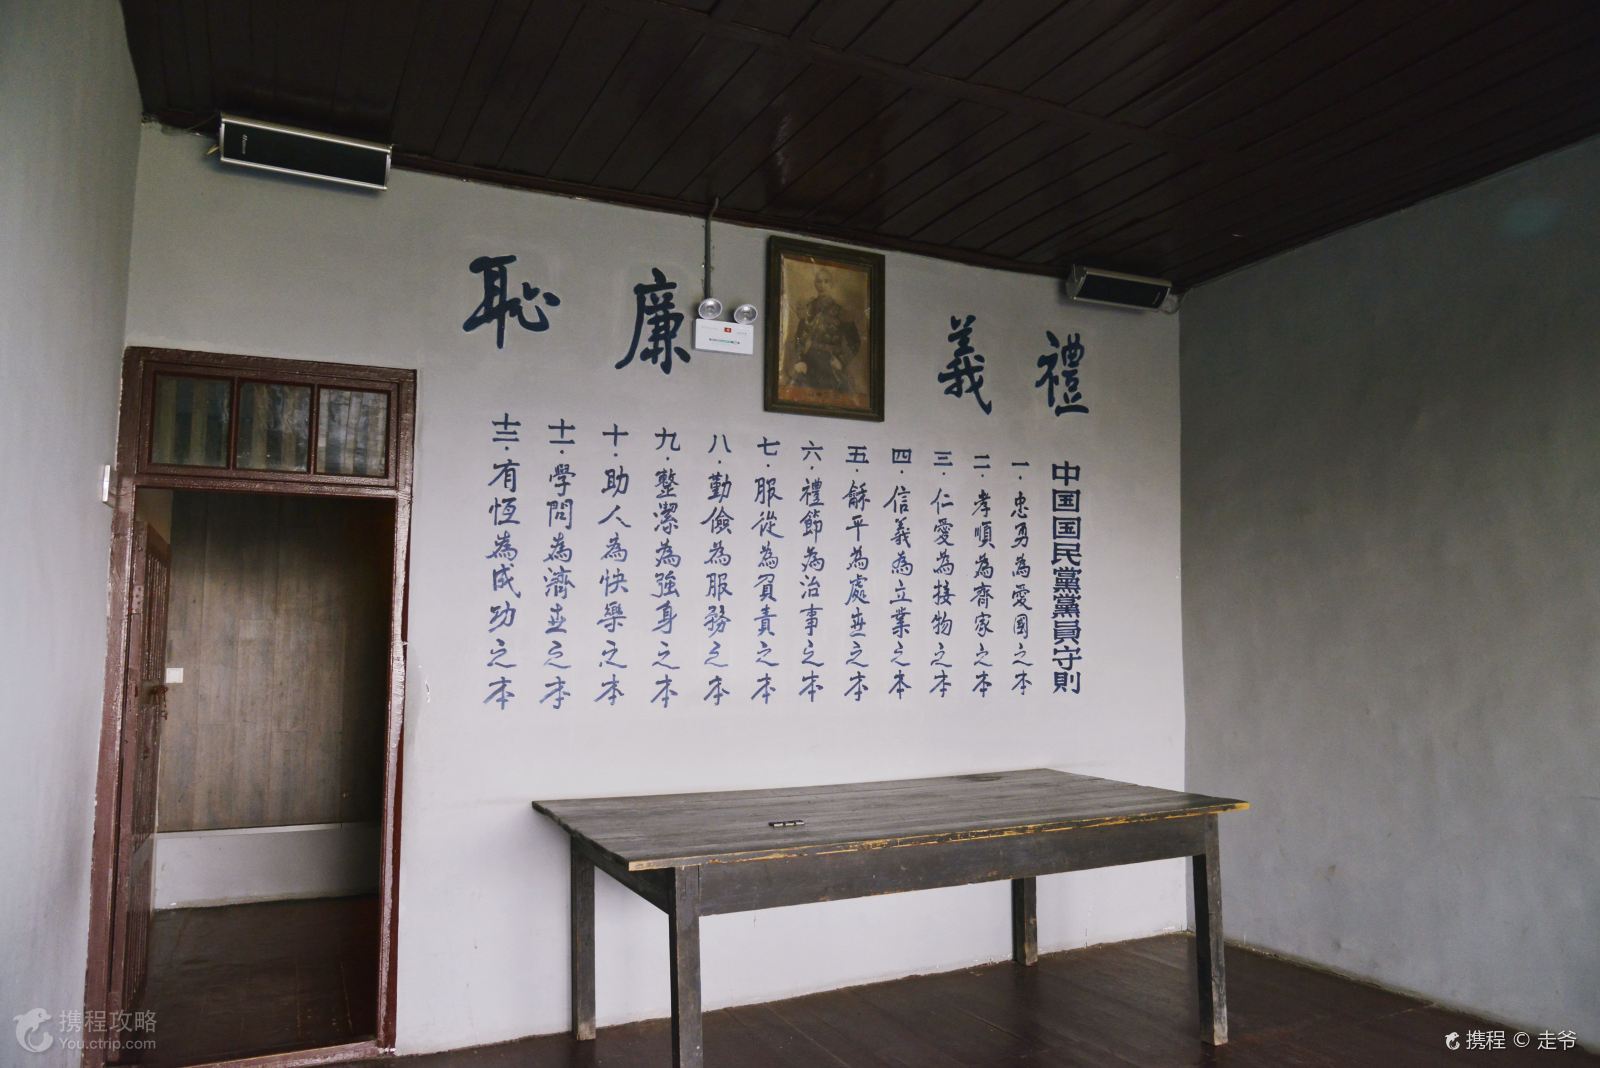 禮義廉恥
中国国民黨黨員守則
一·忠勇為愛國之本
二·孝順為齊家之本
三·仁愛為接物之本
四·信義為立業之本
五·龢平為處世之本
六·禮節為治事之本
七·服從為負責之本
八·勤儉為服務之本
九·整潔為強身之本
十·助人為快樂之本
十一·學問為濟世之本
十二·有恆為成功之本
携程攻略
You.ctrip.com
携程 © 走爷